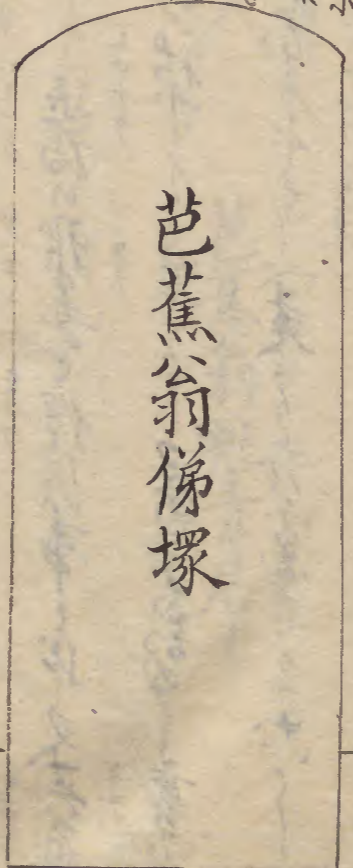 芭蕉翁俤塚